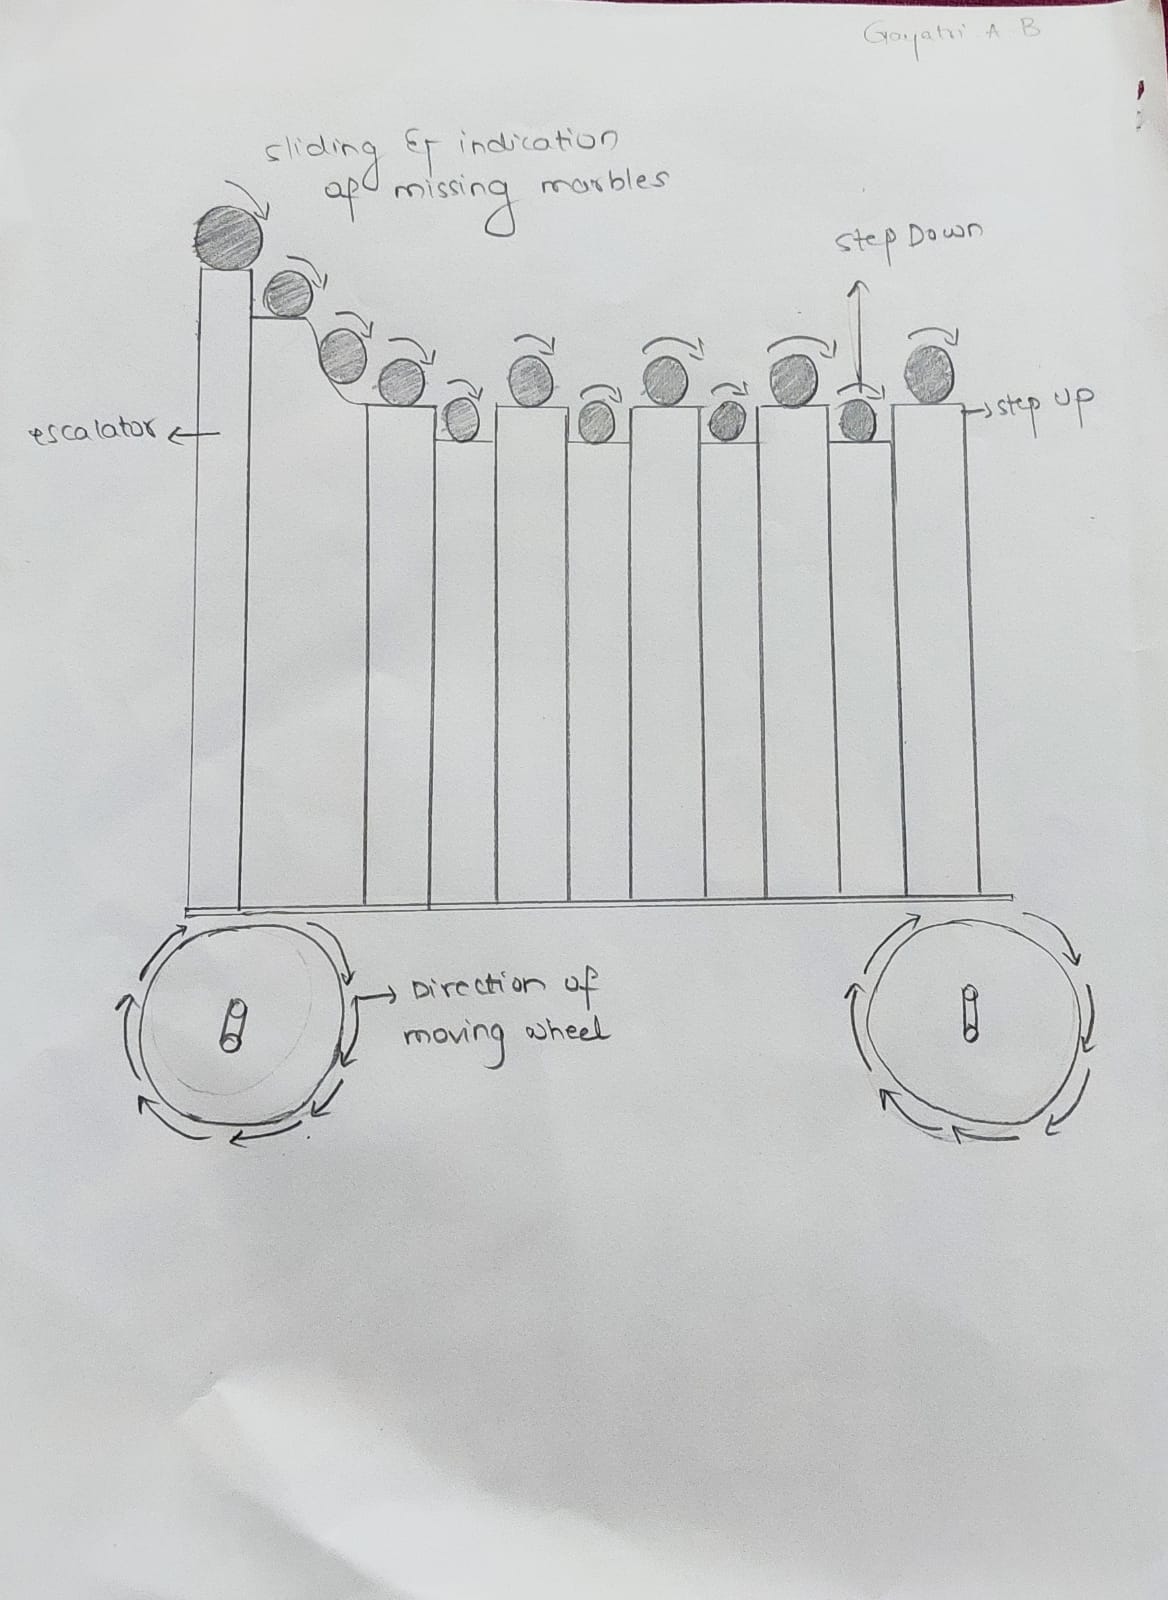 Gayatri A B
sliding & indication
of missing marbles
step Down
escalator
step up
Direction of
moving wheel